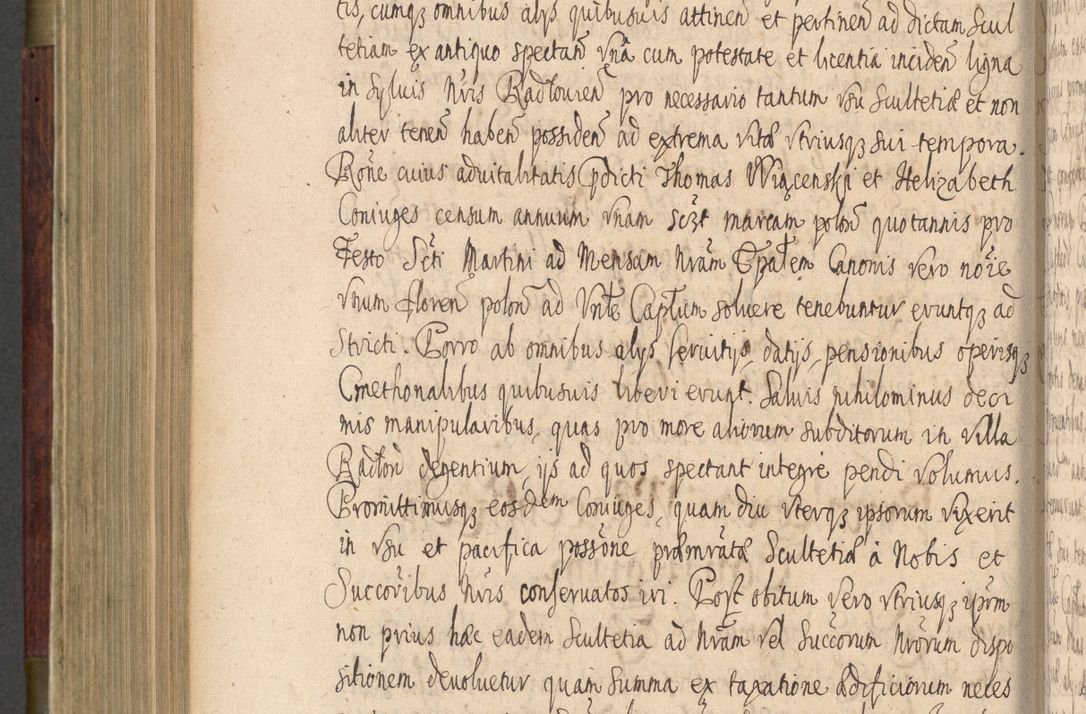 tis, cumq₃ omnibus alijs quibusuis attinen̄ et pertinen̄ ad dictam Scul
tetiam ex antiquo spectan̄ vnā cum potestate et licentia inciden̄ ligna
in syluis nr̄is Radłouien̄ pro necessario tantum vsu Scultetiæ et non
aliter tenen̄ haben̄ possiden̄ ad extrema vitæ vtriusq₃ sui tempora.
Rōne cuius aduitalitatis p̄dicti Thomas Wiącenski et Helizabeth
Coniuges censum annuum vnam sc̄zt marcam polon̄ quotannis pro
Festo Sc̄ti Martini ad Mensam nr̄am Ep̄alem Canonis vero no͞ie
vnum floren̄ polon̄ ad vnīte Cap̄lum soluere tenebuntur eruntq₃ ad
stricti. Porro ab omnibus alijs seruitijs, datijs, pensionibus operisq₃
Cmethonalibus quibusuis liberi erunt. Saluis nihilominus deci
mis manipularibus, quas pro more aliorum subditorum in villa
Radłou degentium, ijs ad quos spectant integrè pendi volumus.
Promittimusq₃ eosdem Coniuges, quam diu vterq₃ ipsorum vixerit
in vsu et pacifica possōne præmr̄atæ Scultetiæ à Nobis et
Succor̄ibus nr̄is conseruatos iri. Post obitum vero vtriusq₃ ipr̄m
non prius hæc eadem Scultetia ad nr̄am vel Succ̄orum nr̄orum dispo
sitionem deuoluetur quam summa ex taxatione ædificiorum neces